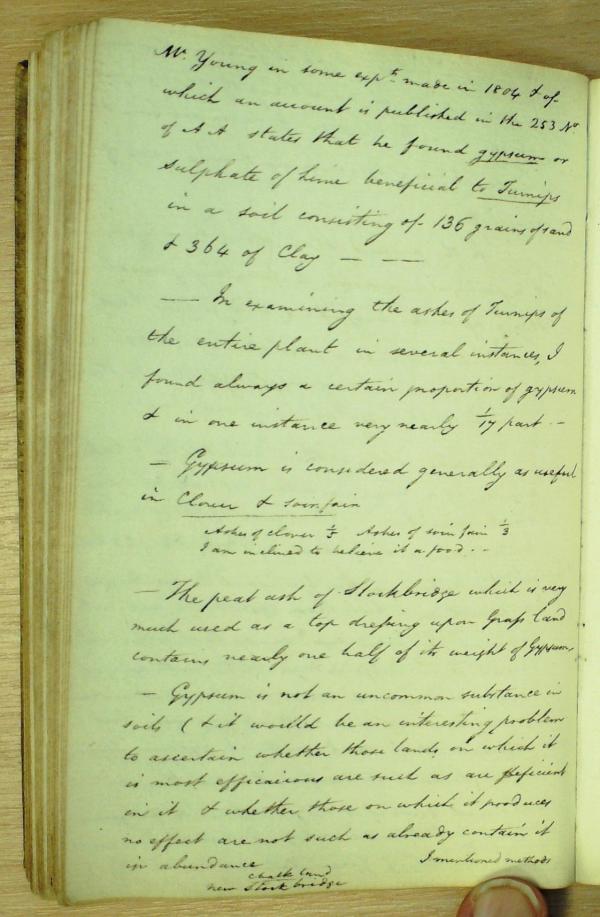 Mr. Young in some expts. made in 1804 & of
which an account is published in the 253 No
of A A states that he found gypsum or
Sulphate of Lime beneficial to Turnips
in a soil consisting of 136 grains of sand
& 364 of Clay — —
— In examining the ashes of Turnips of
the entire plant in several instances, I
found always a certain proportion of gypsum
& in one instance very nearly 1/17 part. –
– Gypsum is considered generally as useful
in Clover & soin foin
Ashes of clover 1/5 Ashes of soin foin 1/3
I am inclined to believe it a food. – –
– The peat ash of Stockbridge which is very
much used as a top dressing upon Grass land
contains nearly one half of its weight of Gypsum,
– Gypsum is not an uncommon substance in
soils ( & it would be an interesting problem
to ascertain whether those lands on which it
is most efficaicous are such as are deficient
in it & whether those on which it produces
no effect are not such as already contain it
in abundance
I mentioned methods
chalk land
near Stockbridge